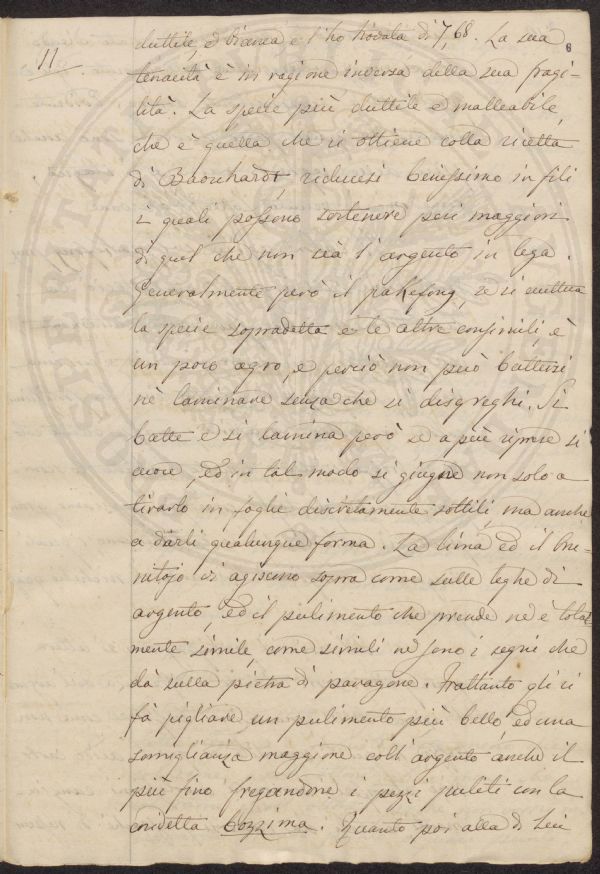 11
6
duttile, ed bianca e l'ho trovata di 7,68. La sua
tenacità è in ragione inversa della sua fragi-
lità. La specie più duttile e malleabile,
che è quella che si ottiene colla ricetta
di riducesi benissimo in fili
i quali possono sostenere pesi maggiori
di quel che non sia l'argento in lega.
Generalmente però il pakfong, se si eccettua
la specie sopradetta e le altre consimili, è
un poco agro, e perciò non può battersi
nè laminare senza che si disgreghi. Si
batte e si lamina però se a più riprese si
cuoce, ed in tal modo si giugne non solo a
tirarlo in foglie discretamente sottili, ma anche
a darli qualunque forma. La lima ed il bru-
nitojo vi agiscono sopra come sulle leghe di
argento, ed il pulimento che prende ne è total-
mente simile, come simili ne sono i segni che
dà sulla pietra di paragone. Frattanto gli si
fà pigliare un pulimento più bello, ed una
somiglianza maggiore coll'argento anche il
più fino fregandone i pezzi puliti con la
cosidetta bozzima. Quanto poi alla di lui